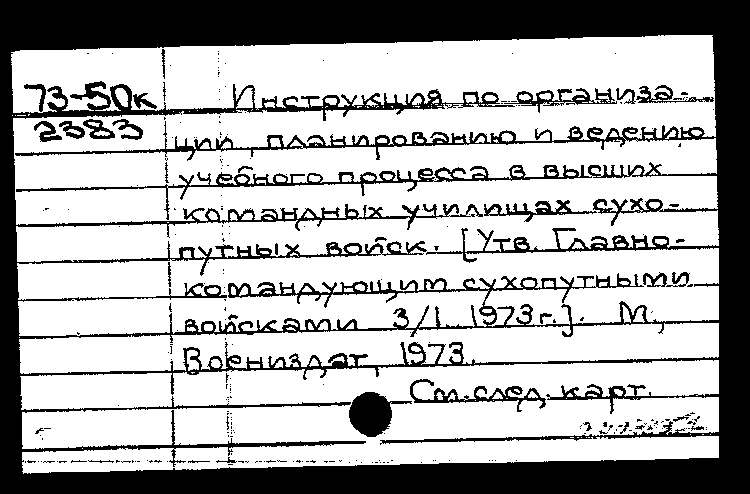 73-50к
2383
Инструкция по организа-
ции, планированию и ведению
учебного процесса в высших
командных училищах сухо-
путных войск. [Утв. Главно-
командующим сухопутными
войсками 3/I 1973г.]. М.,
Воениздат, 1973.
См. след. карт.